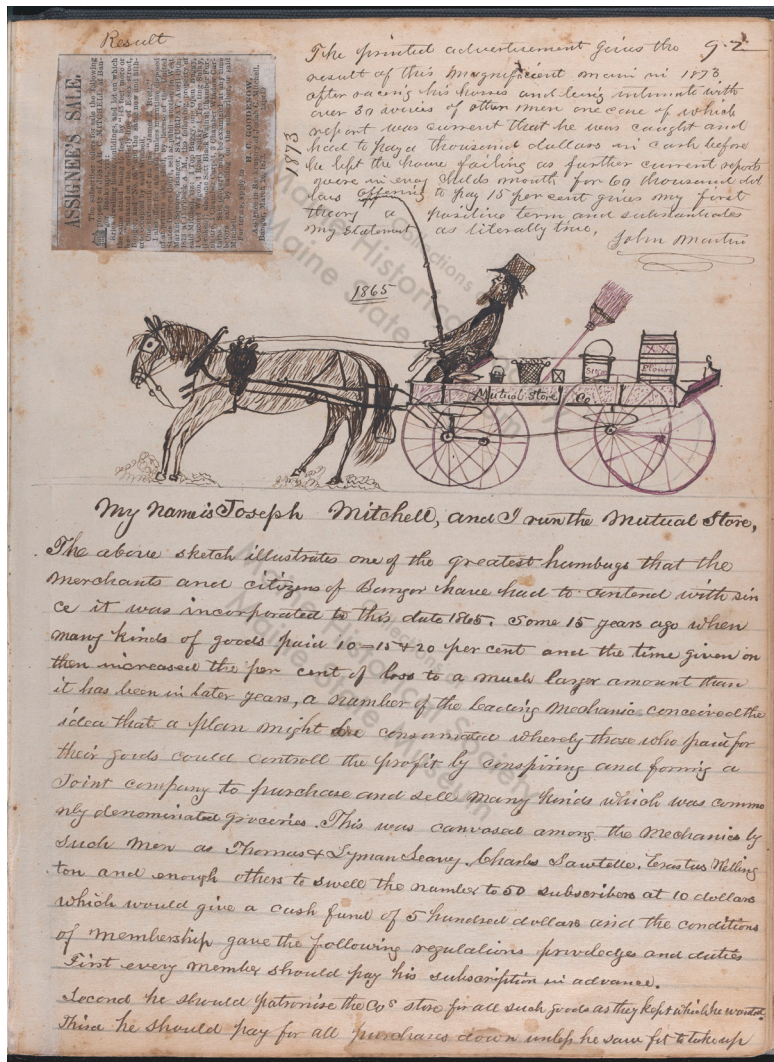 Result
ASSIGNEE'S SALE.
The subscriber offers for sale the following
JOSEPH MITCHELL, of Ban-
H. C. GOODENOW,
Assignee of Joseph C. Mitchell.
Bangor, March 20, 1873.
1873
92
The printed advertisement gives the
result of this magnificient man in 1873
after racing his horses and being intimate with
over 30 wives of other men one case of which
report was current that he was caught and
had to pay a thousand dollars in cash before
he left the house failing as further current reports
were in evry childs mouth for 60 thousand dol
lars offering to pay 15 per cent gives my first
theory a positive term and substantiates
my statement as literally true,
John Martin
1865
Mutual Store Co
XX
Flour
My Name is Joseph Mitchell, and I run the Mutual Store,
The above sketch illustrates one of the greatest humbugs that the
Merchants and citizens of Bangor have had to contend with sin
ce it was incorporated to this date 1865. Some 15 years ago when
many kinds of goods paid 10=15 & 20 per cent and the time given on
then increased the per cent of loss to a much larger amount than
it has been in later years, a number of the leading Mechanics conceived the
idea that a plan might be consumated whereby those who paid for
their goods could controll the profit by conspiring and forming a
Joint company to purchase and sell many kinds which was commo
nly denominated groceries. This was canvased among the Mechanics by
such men as Thomas & Lyman Seavy. Charles Sawtelle. Erastus Welling
ton and enough others to swell the number to 50 subscribers at 10 dollars
which would give a cash fund of 5 hundred dollars and the conditions
of Membership gave the following regulations priviledges and duties
First every member should pay his subscription in advance.
Second he should patronise the Cos store for all such goods as they kept which he wanted.
Third he should pay for all purchases down unless he saw fit to take up
Maine Historical Society
Maine State Museum